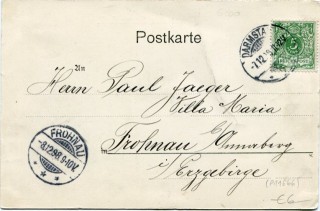 Postkarte
DARMSTA
An
Herrn Paul Jaeger
Villa Maria
Frohnau b/ Annaberg
in
i/ Erzgebirge
FROHNAU
8.12.98.9-10V.